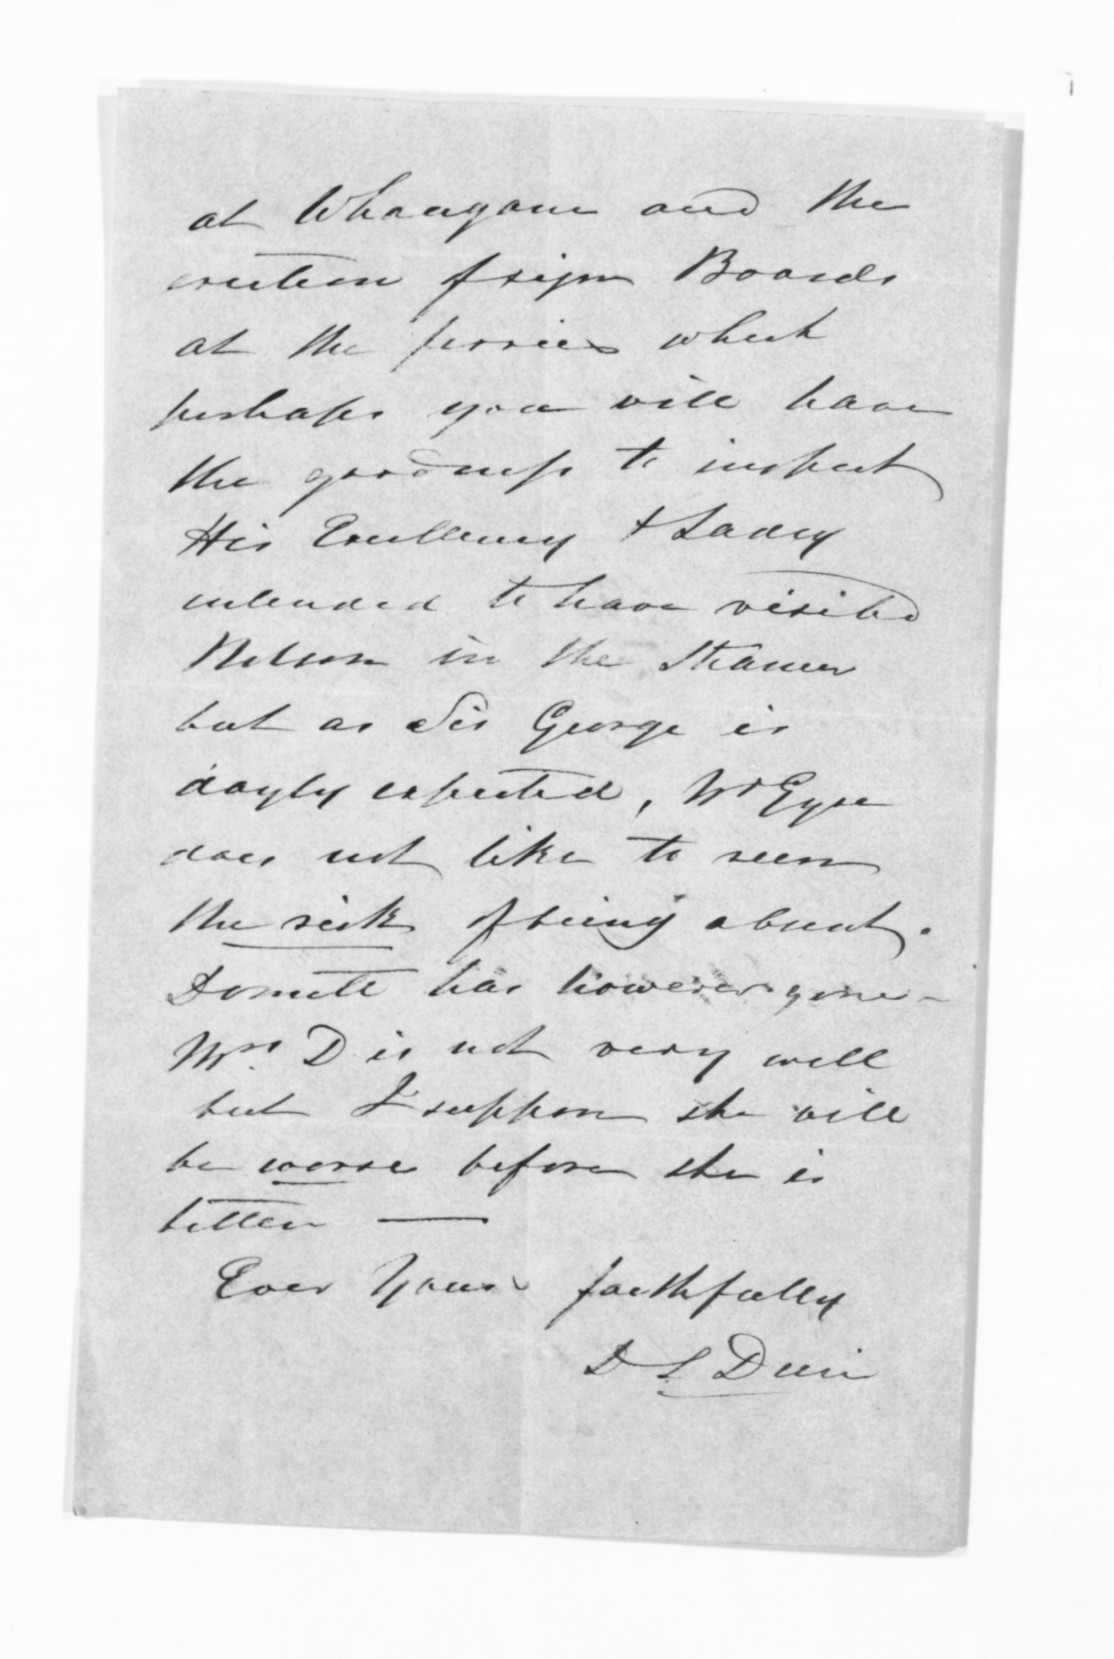 at Whanganui and the
erection of sign Boards
at the ferries which
perhaps you will have
the goodness to inspect
His Excellency & Lady
intended to have visited
Nelson in the Steamer
but as Sir George is
dayly expected, Mr Eyre
does not like to
the risk of being absent.
Domett has however gone -
Mrs. D is not very well
but I suppose she will
be worse before she is
better —
Ever Yours faithfully
D